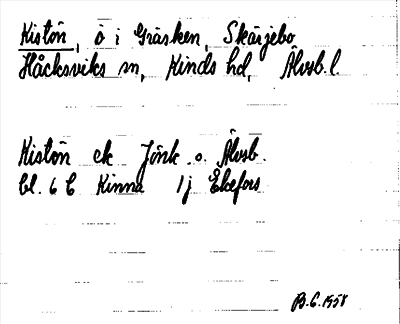 Kistön, ö i Gräsken, Skärjebo
Håcksviks sn, Kinds hd, Älvsb. l.
Kistön ek Jönk. o. Älvsb.
bl. 6 C Kinna 1j Ekefors
B.G. 1958